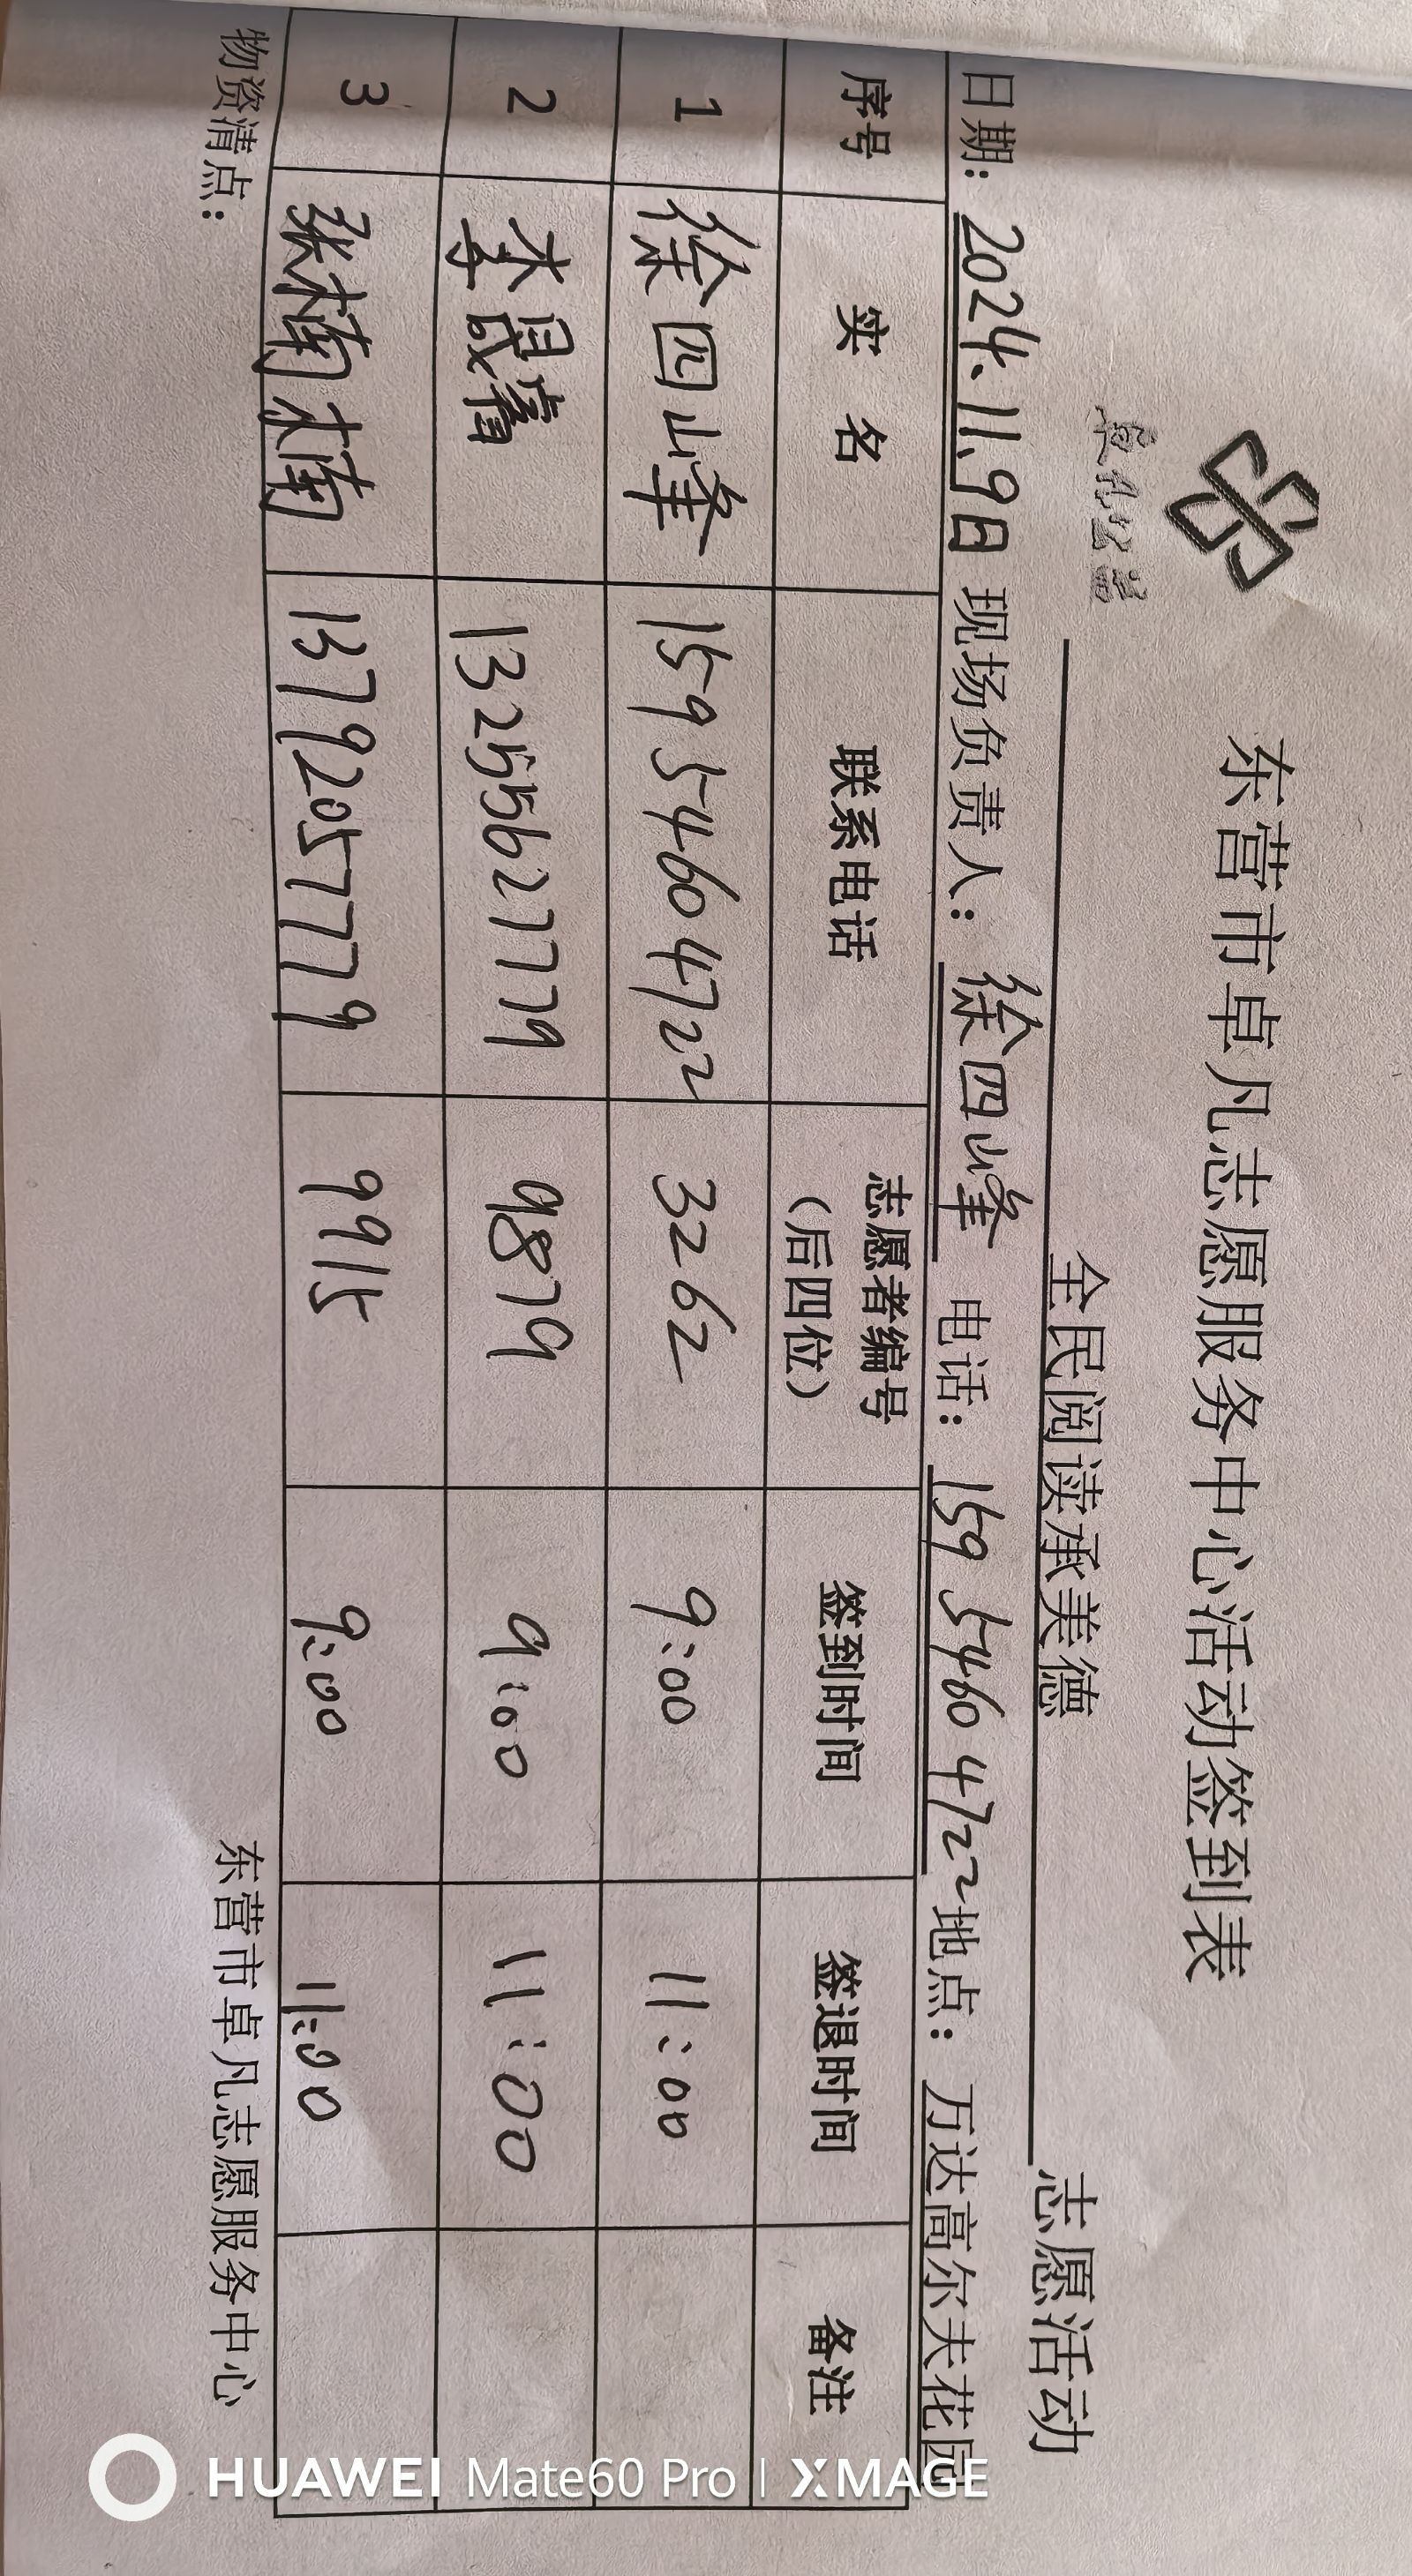 卓凡公益
东营市卓凡志愿服务中心活动签到表
全民阅读承美德 志愿活动
日期：2024.11.9日 现场负责人：徐四山峰 电话：159 5460 4722 地点：万达高尔夫花园
序号 实 名 联系电话 志愿者编号（后四位） 签到时间 签退时间 备注
1 徐四山峰 159 5460 4722 3262 9:00 11:00
2 李晟睿 13255627779 9879 9:00 11:00
3 张楠楠 13792057779 9915 9:00 11:00
物资清点：
东营市卓凡志愿服务中心
HUAWEI Mate60 Pro | XMAGE